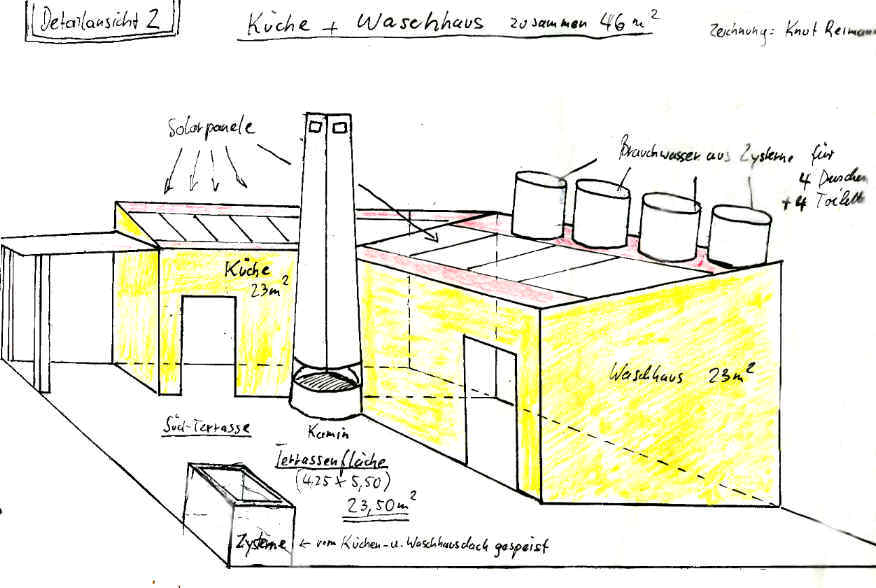 Detailansicht 2
Küche + Waschhaus zusammen 46 m²
Zeichnung: Knut Reimann
Solarpanele
Brauchwasser aus Zysterne für
4 Duschen
+ 4 Toilett
Küche
23m²
Waschhaus 23m²
Süd-Terrasse
Kamin
Terrassenfläche
(4,25 x 5,50)
23,50m²
Zysterne ← vom Küchen- u. Waschhausdach gespeist